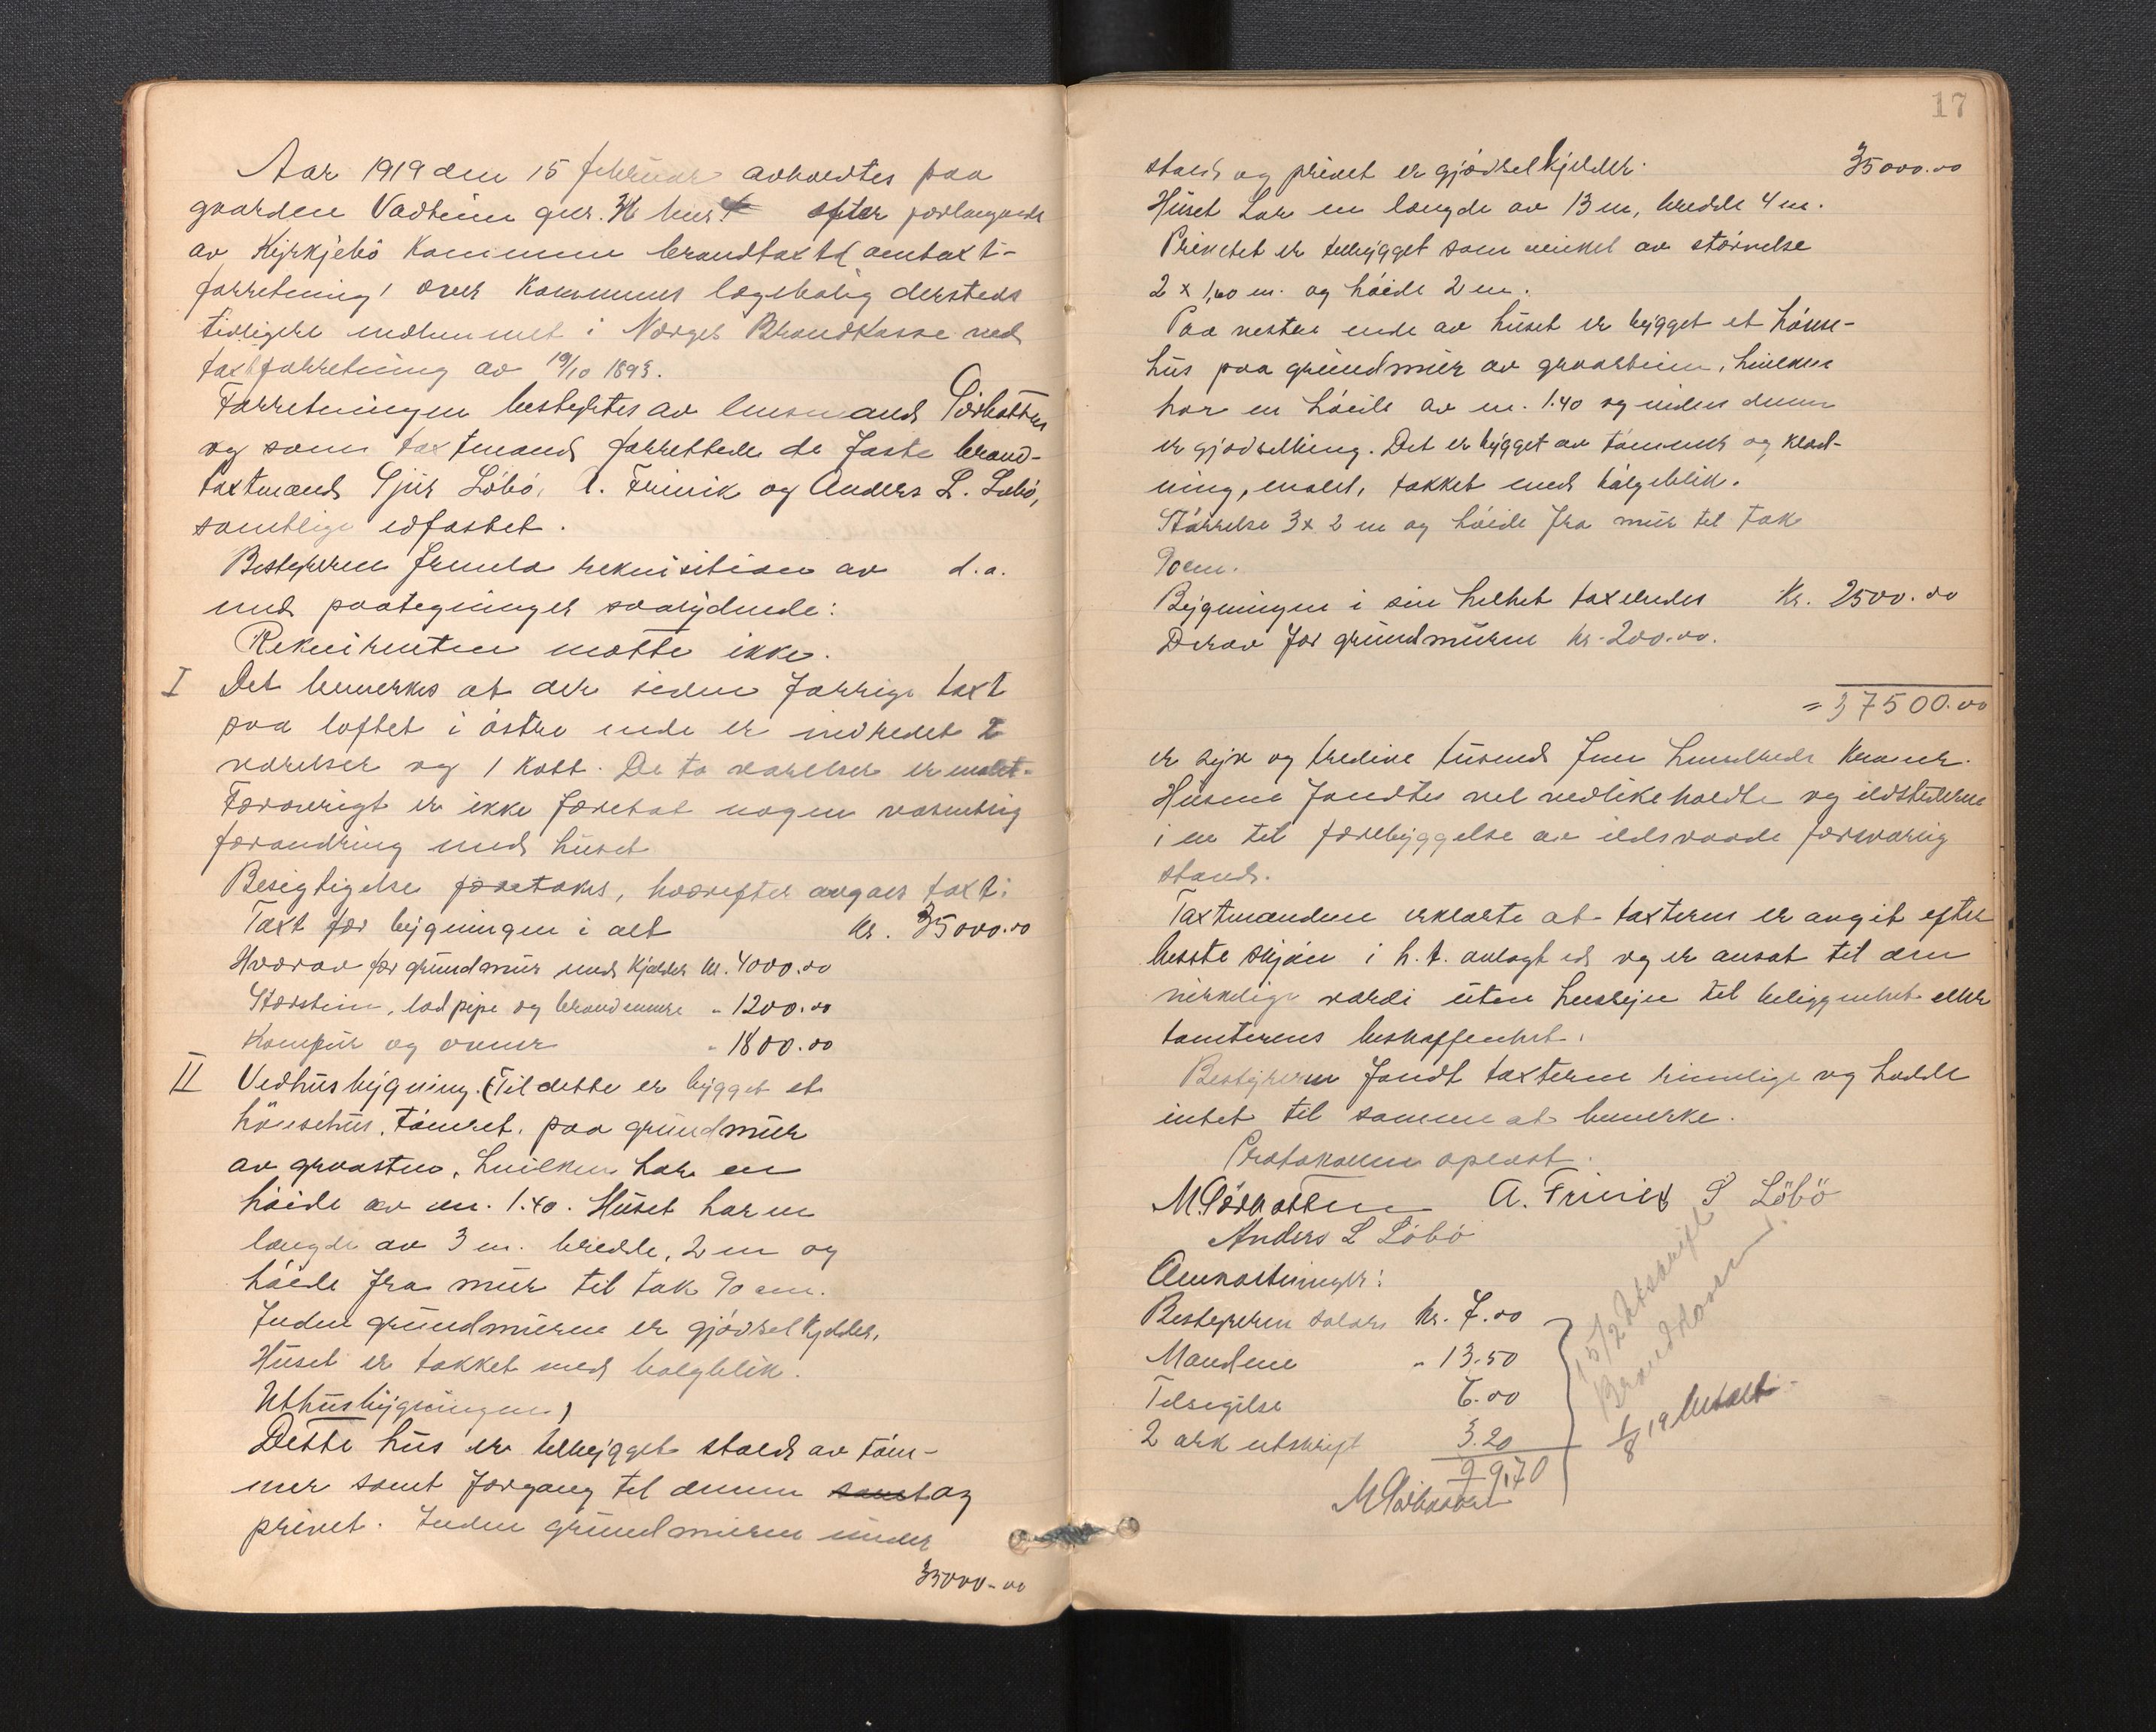 Aar 1919 den 15 februar avholdtes paa
gaarden Vadheim gnr. bnr. efter forlangende
av Kyrkjebö Kommune brandtaxt (omtaxt-
forretning) over Kommunens lægebolig dersteds
tidligere indlemmet i Norges Brandkasse ved
taxtforretning av 19/10 1893.
Forretningen bestyrtes av lensmand
og som taxtmænd forrettede de faste brand-
taxtmænd Sjur Löbö, A. Frivik og Anders L. Löbö,
samtlige edfæstet.
Bestyreren fremla rekvisition av d.a.
med paategninger saalydende:
Rekvirenten mötte ikke.
I Det bemerkes at der siden forrige taxt
paa loftet i östre ende er indredet 2
værelser og 1 kott. De to værelser er malet.
Forøvrigt er ikke foretat nogen væsentlig
forandring med huset
Besigtigelse foretokes, hvorefter avgaes taxt:
Taxt for bygningen i alt Kr. 35000.00
Hvorav for grundmur med kjælder kr. 4000.00
Skorstein, lodpipe og brandmure " 1200.00
Komfur og ovner " 1800.00
II Vedhusbygning. (Til dette er bygget et
hönsehus, tömret, paa grundmur
av graasten, hvilken har en
höide av m. 1.40. Huset har en
længde av 3 m. bredde, 2 m og
höide fra mur til tak 90 cm.
Inden grundmurene er gjödselkjelder.
Huset er takket med bölgeblik.
Uthusbygningen)
Dette hus er tilbygget stald av töm-
mer samt forgang til denne samt og
privet. Inden grundmuren under
35000.00
17
stald og privet er gjödselkjelder. 35000.00
Huset har en længde av 13 m, bredde 4 m.
Privetet er tilbygget som vinkel av störrelse
2 x 1,60 m. og höide 2 m.
Paa vestre ende av huset er bygget et hönse-
hus paa grundmur av graastein, hvilken
har en höide av m. 1.40 og inden denne
er gjödselbing. Det er bygget av tömmer og klæd-
ning, malet, takket med bölgeblik.
Störrelse 3 x 2 m og höide fra mur til tak
90 cm.
Bygningen i sin helhet taxeredes Kr. 2500.00
Derav for grundmuren kr. 200.00.
= 37500.00
er syv og tredive tusend fem hundrede kroner.
Husene fandtes vel vedlikeholdte og ildstederne
i en til forebyggelse av ildsvaade forsvarlig
stand.
Taxtmændene erklærte at taxterne er avgit efter
beste skjön i h.t. avlagt ed og er ansat til den
virkelige værdi uten hensyn til beliggenhet eller
tomternes beskaffenhet.
Bestyreren fandt taxterne rimelige og hadde
intet til samme at bemerke.
Protokollen oplæst.
A. Frivik S Löbö
Anders L Löbö
Omkostninger:
Bestyreren salær Kr. 7.00
Mændene " 13.50
Tilsigelse 6.00
2 ark utskrift 3.20
29.70
15/2 Utskrift
Brandkassen
1/8 19 betalt